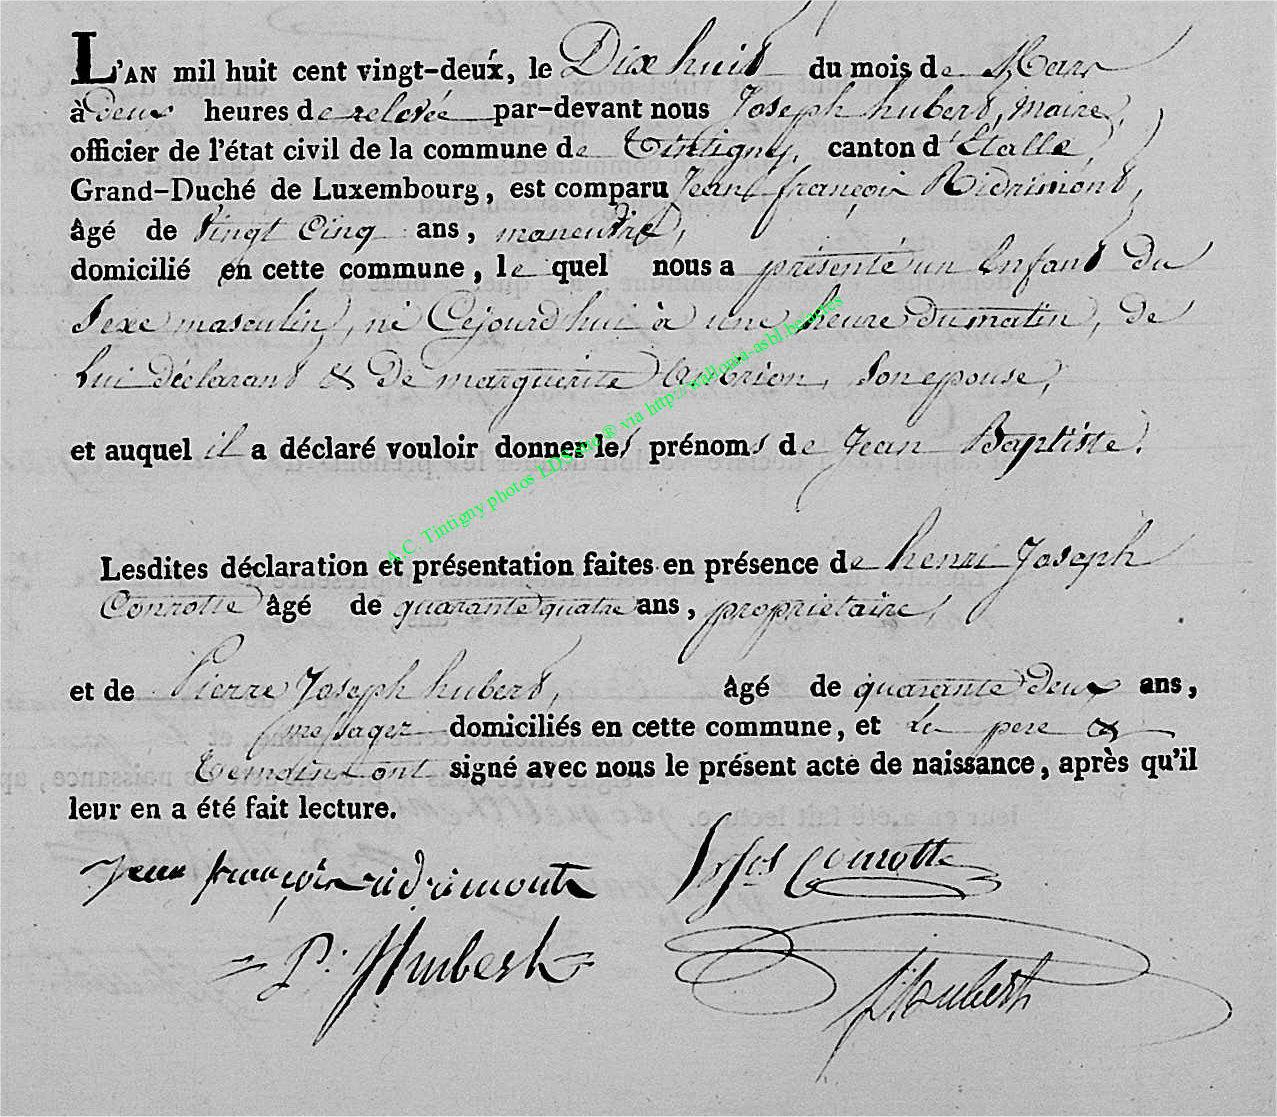 L'AN mil huit cent vingt-deux, le Dix huit du mois de Mars
à Deux heures de relevée par-devant nous Joseph hubert, maire,
officier de l'état civil de la commune de Tintigny, canton d'Etalle,
Grand-Duché de Luxembourg, est comparu Jean françois Ridrimont,
âgé de Vingt Cinq ans, maneuvre,
domicilié en cette commune, le quel nous a présenté un Enfant du
Sexe masculin, né Cejourd'hui à une heure du matin, de
Lui déclarant & de marguerite son epouse,
et auquel il a déclaré vouloir donner les prénoms de Jean Baptiste.
Lesdites déclaration et présentation faites en présence de henri Joseph
Conrotte âgé de quarante quatre ans, propriétaire,
et de Pierre Joseph hubert, âgé de quarante deux ans,
messager domiciliés en cette commune, et Le pere &
Temoins ont signé avec nous le présent acte de naissance, après qu'il
leur en a été fait lecture.
Jean françois ridrimont Conrotte
P. Hubert J Hubert
A.C. Tintigny photos LDS via http://wallonia-asbl.be/actes